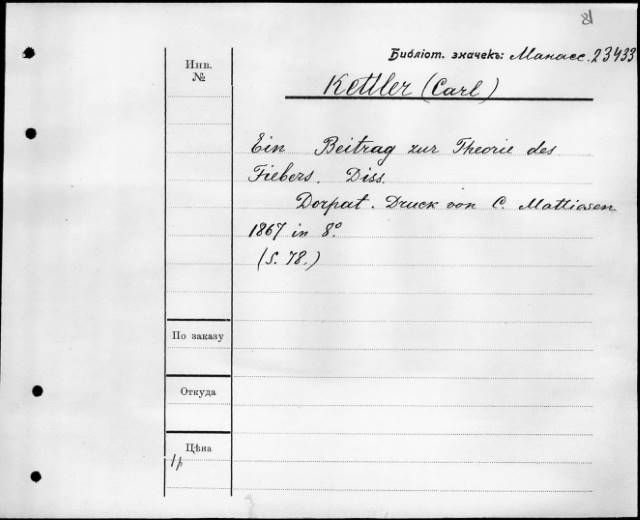 81
Библіот. значекъ: Манасс. 23433
Инв.
№
Kettler (Carl)
Ein Beitrag zur Theorie des
Fiebers. Diss.
Dorpat. Druck von C. Mattiesen
1867 in 8°.
(S. 78.)
По заказу
Откуда
Цѣна
1р